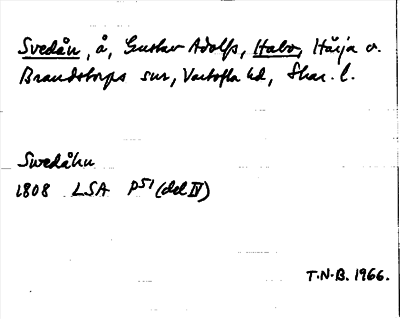 Svedån, å, Gustav Adolfs, Habo, Härja o.
Brandstorps snr, Vartofta hd, Skar. l.
Swedåhn
1808 LSA P51 (del IV)
T.N-B. 1966.